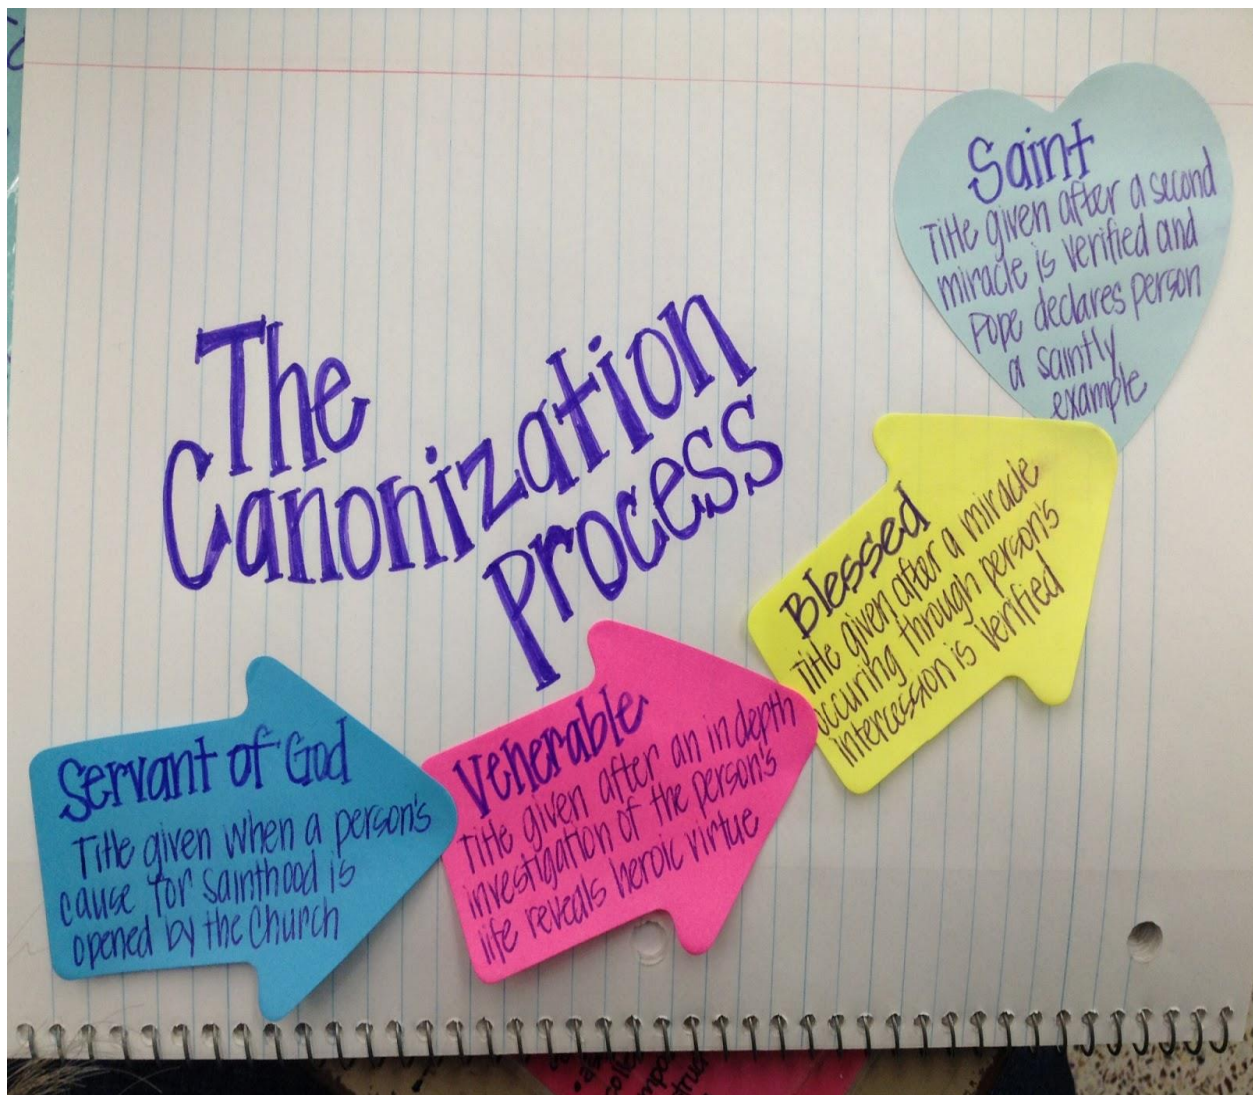 The
Canonization
Process
Servant of God
Title given when a person's
cause for sainthood is
opened by the Church
Venerable
Title given after an in depth
investigation of the person's
life reveals heroic virtue
Blessed
Title given after a miracle
occuring through person's
intercession is verified
Saint
Title given after a second
miracle is verified and
Pope declares person
a saintly
example